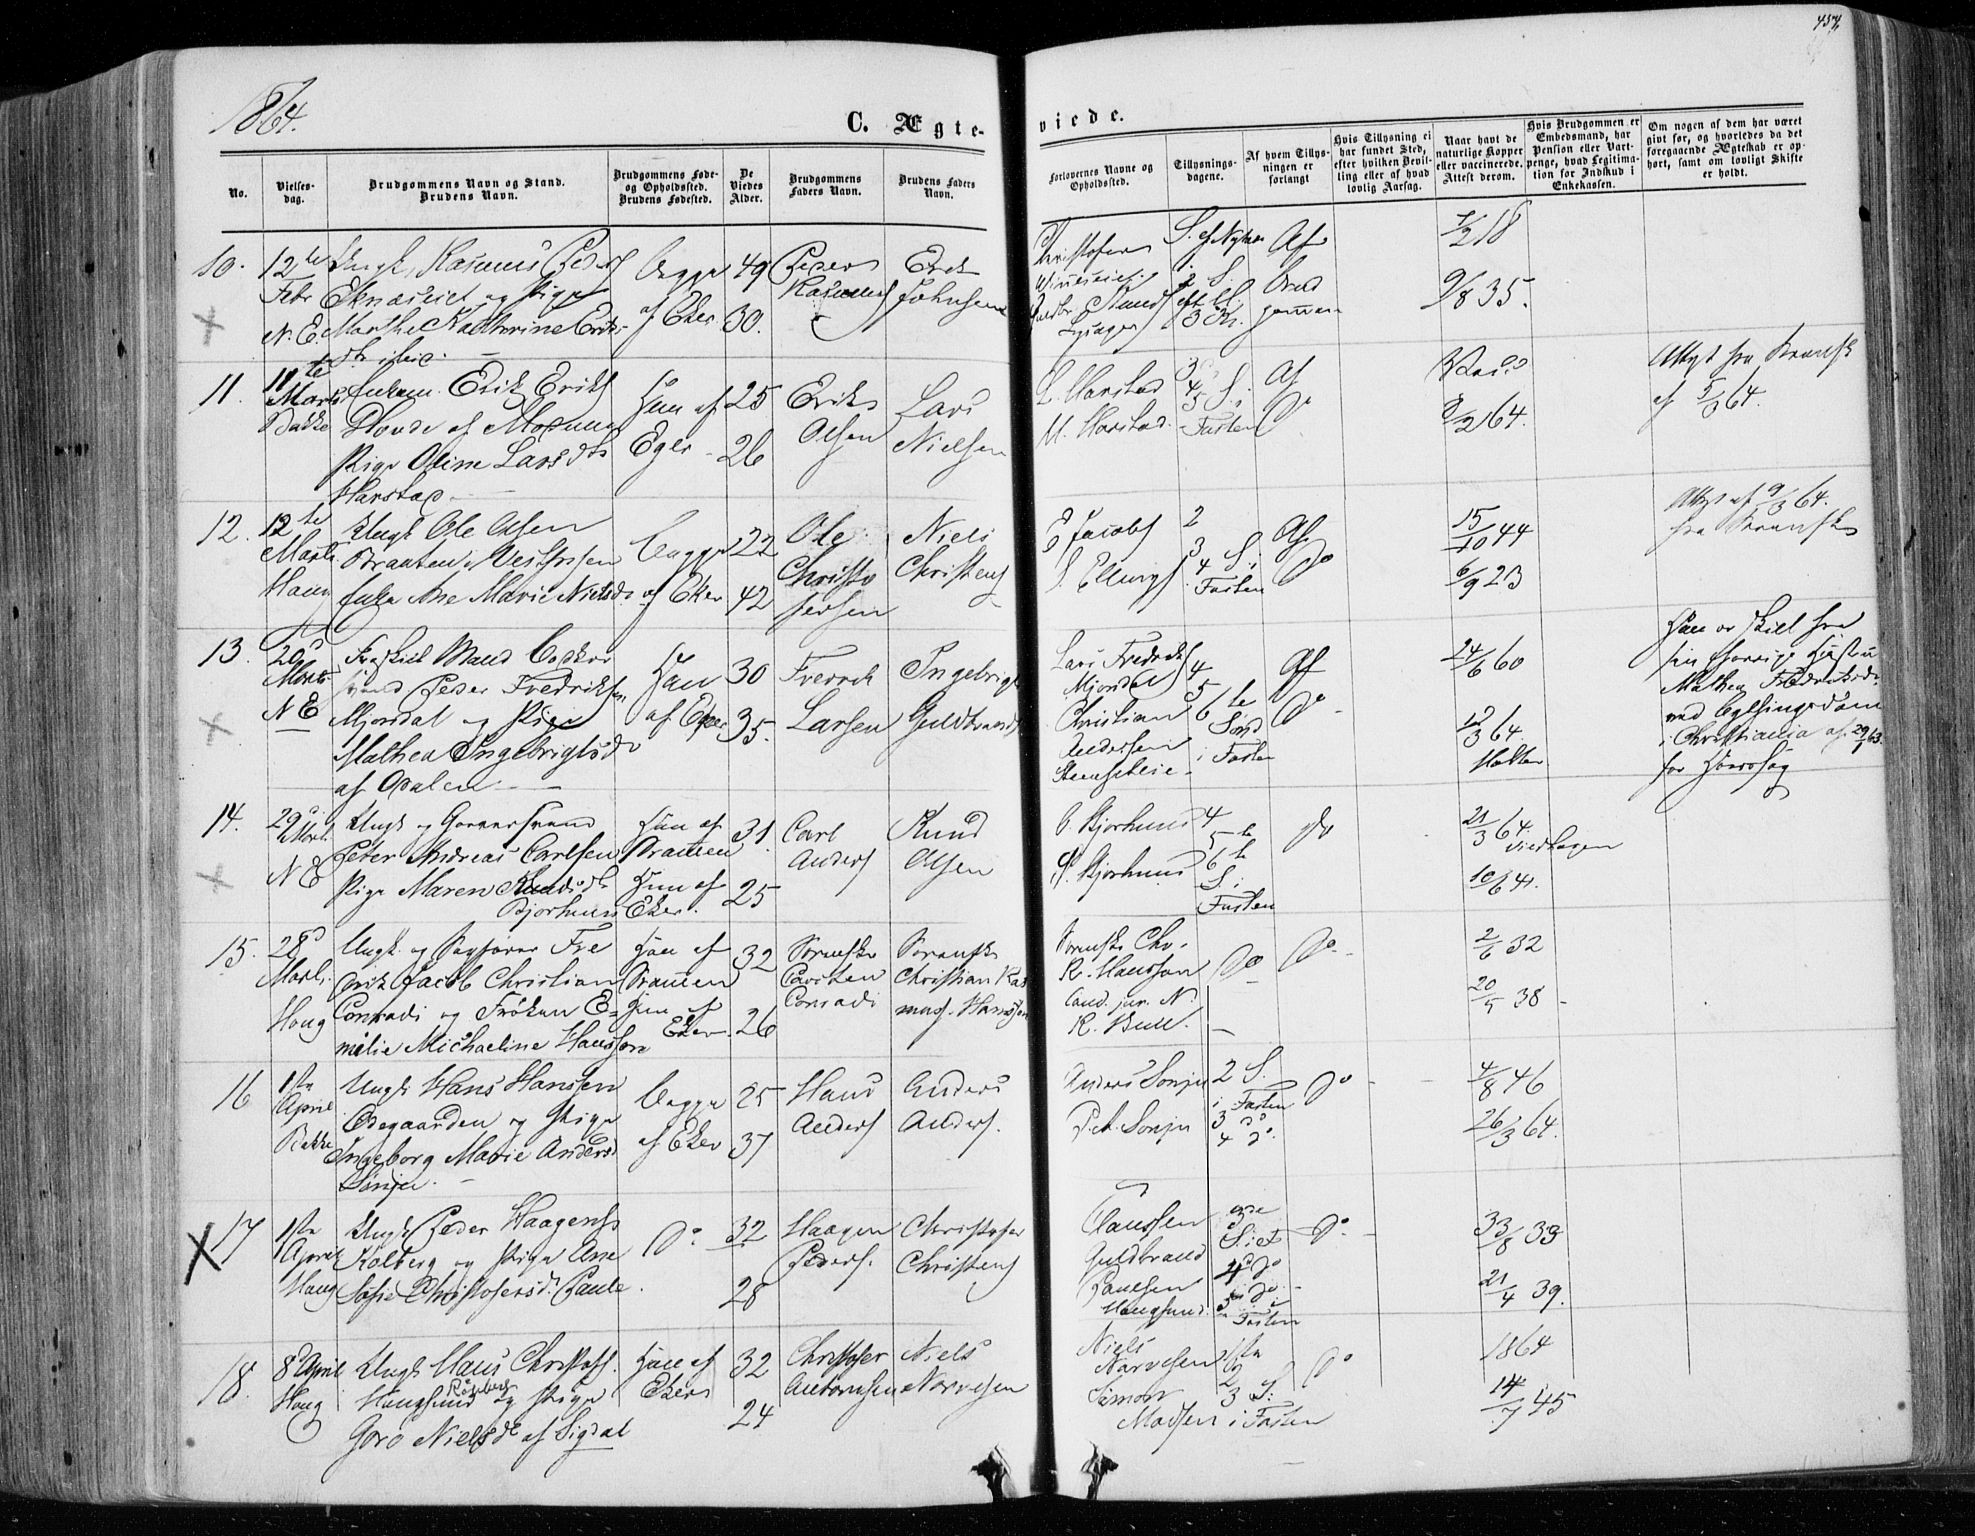 1864.
434
C. Ægte-
viede.
No.
Vielses-
dag.
Brudgommens Navn og Stand.
Brudens Navn.
Brudgommens Føde-
og Opholdssted.
Brudens Fødested.
De
Viedes
Alder.
Brudgommens
Faders Navn.
Brudens Faders
Navn.
Forlovernes Navne og
Opholdssted.
Tillysnings-
dagene.
Af hvem Tillys-
ningen er
forlangt
Hvis Tillysning ei
har fundet Sted,
efter hvilken Bevil-
ling eller af hvad
lovlig Aarsag.
Naar havt de
naturlige Kopper
eller vaccinerede.
Attest derom.
Hvis Brudgommen er
Embedsmand, har
Pension eller Vart-
penge, hvad Legitima-
tion for Indskud i
Enkekassen.
Om nogen af dem har været
gift før, og hvorledes da det
foregaaende Ægteskab er op-
hørt, samt om lovligt Skifte
er holdt.
10.
12te
Febr
N. E.
Ungk. Rasmus Peders
og Pige
Marthe Kathrine Eriks-
Begge
af Eker
49
30.
Peder
Rasmuss
Erik
Johnsen
Christofer
S. ef Nytaar
Af
Brud
gommen
7/2 18
9/8 35.
11.
11te
Marts
Bakke
Enkem. Erik Eriks
Hovde af Modum
Pige Oline Larsdtr
Harstad
Hun af
Eger
25
26
Erik
Olsen
Lars
Nielsen
L. Harstad
M. Harstad.
3
4
5 S. i
Fasten
Af
Do
8/2 64.
Attest fra
af 5/3 64.
12.
12te
Marts
Haug
Ungk Ole Olsen
Braaten Vestfossen
Enke Ane Marie Nielsd.
Begge
af Eker
22
42
Ole
Christo
fersen
Niels
Christens
E Jacobs
S. Ellings
2
3
4 S. i
Fasten
Af
Do
15/10 44
6/9 23
Attest af 9/3 64.
fra
13.
20d
Marts
N E
Fraskilt Mand
Peder Fredriksen
Mjøndal og Pige
Mathea Ingebrigtsd
af Dalen
Han
af Eker
30
35.
Fredrik
Larsen
Ingebrigt
Guldbrands
Lars Fredriks
Mjøndal
Christian
Andersen
4
5
6te
Sønd
i Fasten
Af
Do
24/6 60
12/3 64
Han er skilt fra
sin forrige Hustru
Mathea Fredriksd.
ved
i Christiania af 29/1 63.
for Hoersag
14.
29d
Marts
N E
Ungk og Garversvend
Peter Andreas Carlsen
Pige Maren Knudsdr
Bjørhuus
Han af
Dramen
Hun af
Eker.
31.
25
Carl
Anders
Knud
Olsen
O. Bjørhuus
P. Bjørhuus
4
5te
6te
S. i
Fasten
Do
21/3 64
10/6 41.
15.
28d
Marts
Haug
Ungk. og Sagfører Fre
drik Jacob Christian
Conradi og Frøken E-
milie Michaeline Hansson
Han af
Dramen
Hun af
Eker
32
26
Sorenskr
Carsten
Conradi
Sorenskr
Christian Ras
mus. Hansson
Sorenskr. Chr.
R. Hansson
Cand. jur. N.
R. Bull.
Do
Do.
2/6 32
20/5 38
16
1ste
April
Bakke
Ungk Hans Hansen
Ødegaarden og Pige
Ingeborg Marie Andersd
Sønju.
Begge
af Eker
25
37
Hans
Anders
Anders
Anders.
Anders Sønju
P. A. Sønju
2 S.
i Fasten
3 do
4 do.
Do
4/8 46
26/3 64.
17
1ste
April
Haug
Ungk Peder Haagens
Kolberg og Pige Ane
Sofie Christofersd. Paule.
Do.
32
28
Haagen
Peders.
Christofer
Christens
Claussen
Guldbrand
Paulsen
Haugsund
3die
S. i F
4 do
5 i
Fasten
Do.
33/8 33
21/4 39.
18.
8d April
Haug
Ungk Hans Christofs.
Haugsund og Pige
Goro Nielsdr af Sigdal
Han af
Eker
32
24
Christofer
Antonisen
Niels
Narvesen
Niels
Narvesen
Simon
Madsen
1ste
2
3 S.
i Fasten
Do
1864
14/7 45